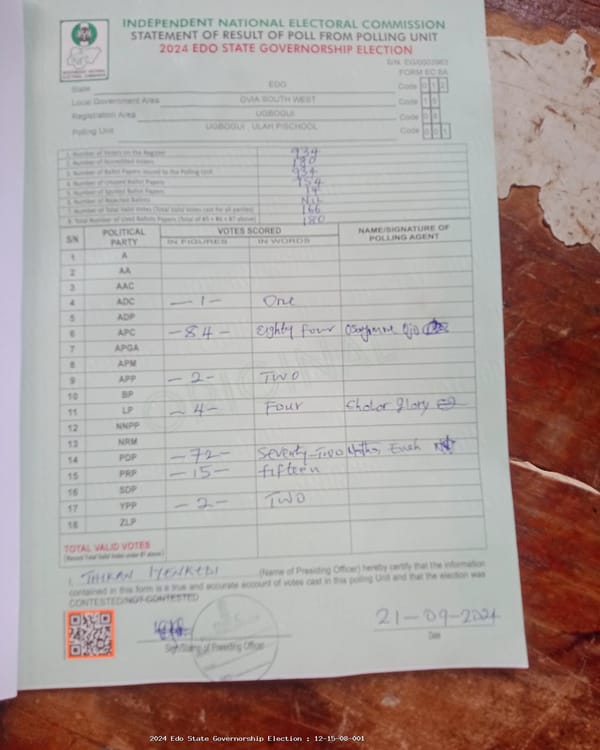 INDEPENDENT NATIONAL ELECTORAL COMMISSION
STATEMENT OF RESULT OF POLL FROM POLLING UNIT
2024 EDO STATE GOVERNORSHIP ELECTION
FORM EC 8A
State EDO Code 012
Local Government Area OVIA SOUTH WEST Code 15
Registration Area UGBOGUI Code 08
Polling Unit UGBOGUI, ULAH P/SCHOOL Code 001
1. Number of Voters on the Register 934
2. Number of Accredited Voters 180
3. Number of Ballot Papers Issued to the Polling Unit 934
4. Number of Unused Ballot Papers 754
5. Number of Spoiled Ballot Papers 14
6. Number of Rejected Ballots Nil
7. Number of Total Valid Votes (Total Valid Votes cast for all parties) 166
8. Total Number of Used Ballots Papers (Total of #5 + #6 + #7 above) 180
SN POLITICAL PARTY VOTES SCORED NAME/SIGNATURE OF POLLING AGENT
IN FIGURES IN WORDS
1 A
2 AA
3 AAC
4 ADC -1- One
5 ADP
6 APC -84- Eighty four
7 APGA
8 APM
9 APP -2- TWO
10 BP
11 LP -4- Four glory
12 NNPP
13 NRM
14 PDP -72- Seventy-Two
15 PRP -15- fifteen
16 SDP
17 YPP -2- TWO
18 ZLP
TOTAL VALID VOTES
I, (Name of Presiding Officer) hereby certify that the information
contained in this form is a true and accurate account of votes cast in this polling Unit and that the election was
CONTESTED/NOT CONTESTED
21-09-2024
Sign/Stamp of Presiding Officer Date
2024 Edo State Governorship Election : 12-15-08-001